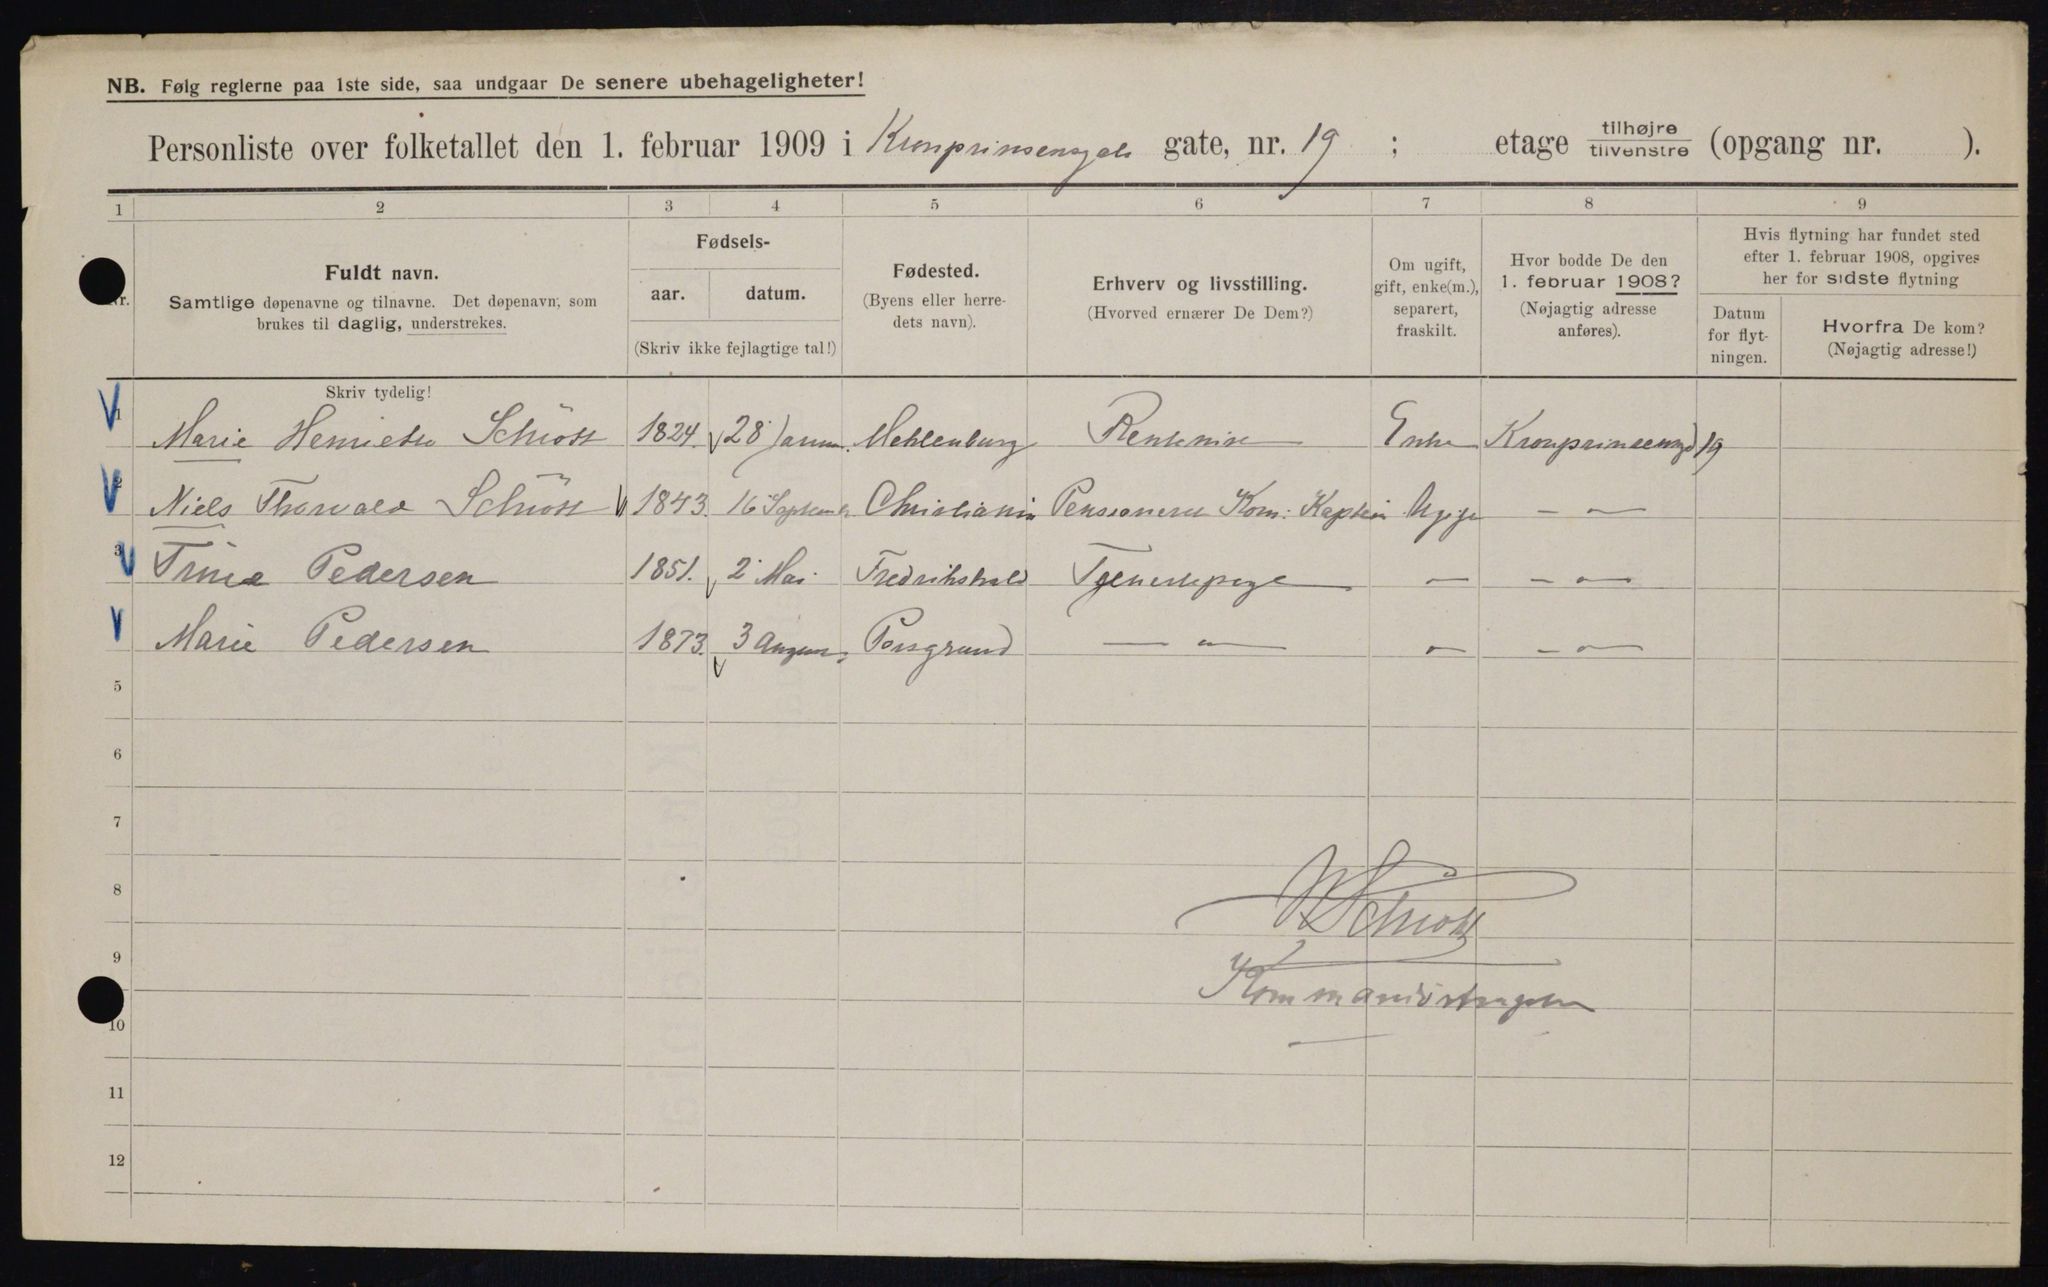 NB. Følg reglerne paa 1ste side, saa undgaar De senere ubehageligheter!
Personliste over folketallet den 1. februar 1909 i Kronprinsensgds gate, nr. 19 ; etage tilhøjre tilvenstre (opgang nr. ).
1 2 3 4 5 6 7 8 9
Nr.
Fuldt navn.
Samtlige døpenavne og tilnavne. Det døpenavn, som
brukes til daglig, understrekes.
Skriv tydelig!
Fødsels-
aar. datum.
(Skriv ikke fejlagtige tal!)
Fødested.
(Byens eller herre-
dets navn).
Erhverv og livsstilling.
(Hvorved ernærer De Dem?)
Om ugift,
gift, enke(m.),
separert,
fraskilt.
Hvor bodde De den
1. februar 1908?
(Nøjagtig adresse
anføres).
Hvis flytning har fundet sted
efter 1. februar 1908, opgives
her for sidste flytning
Datum
for flyt-
ningen.
Hvorfra De kom?
(Nøjagtig adresse!)
1 Marie Henriette Schiött 1824. 28 Januar. Mehlenburg Rentenise Enke Kronprinsensgd 19
2 Niels Thorvald Schiött 1843. 16 September Christiania Pensioneret Kom: Kaptein Ugift — " —
3 Trine Pedersen 1851. 2 Mai. Fredrikshald Tjenestepige — " — — " —
Marie Pedersen 1873. 3 August Porsgrund — " — — " — — " —
5
6
7
8
9
10
11
12
N Schiött